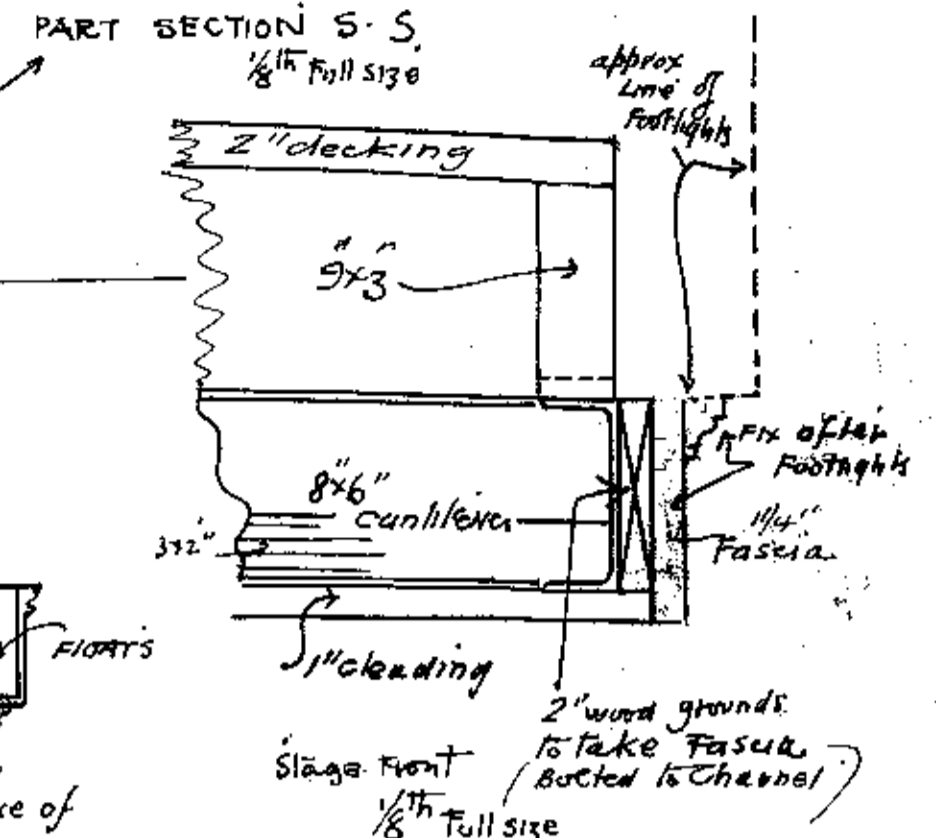 PART SECTION S. S.
1/8th Full size
approx
Line of
Footlights
2" decking
9" x 3"
Fix after
Footlights
8" x 6"
cantilever
3 x 2"
1 1/4"
Fascia
FLOATS
1" cleading
2" wood grounds
to take Fascia
Bolted to Channel
Stage Front
1/8th Full size
of